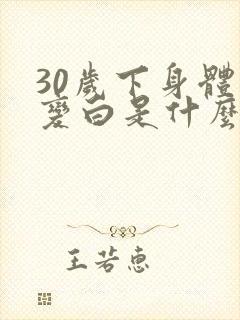 30歲下身體
變白是什麼
王若惠